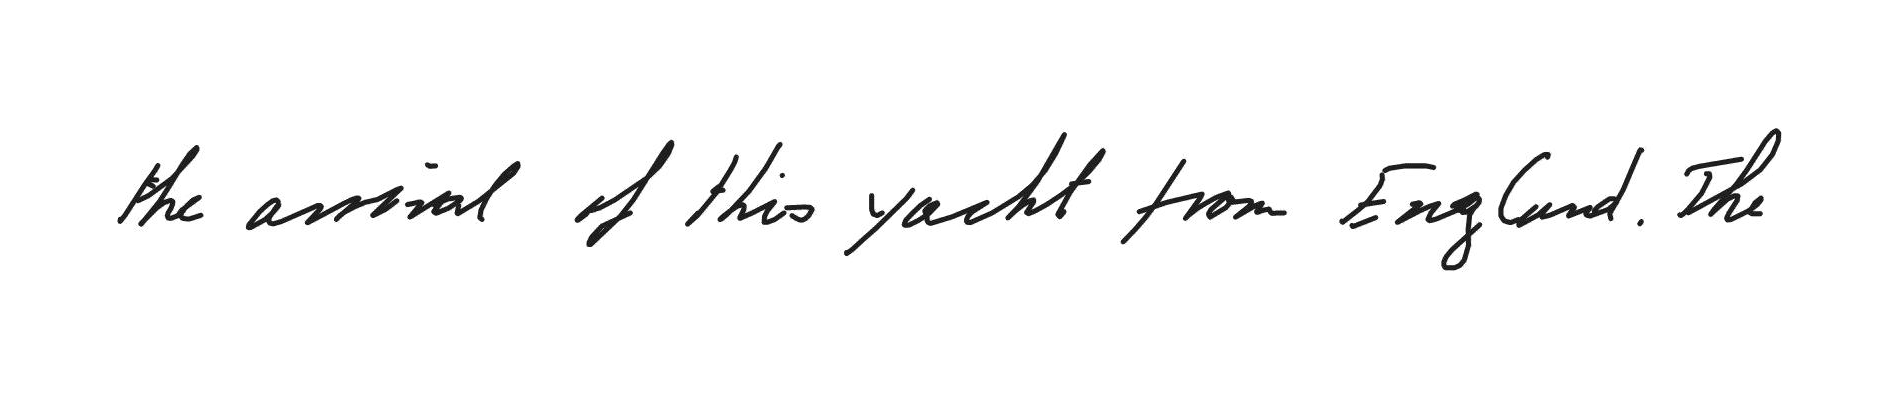 the arrival of this yacht from England. The